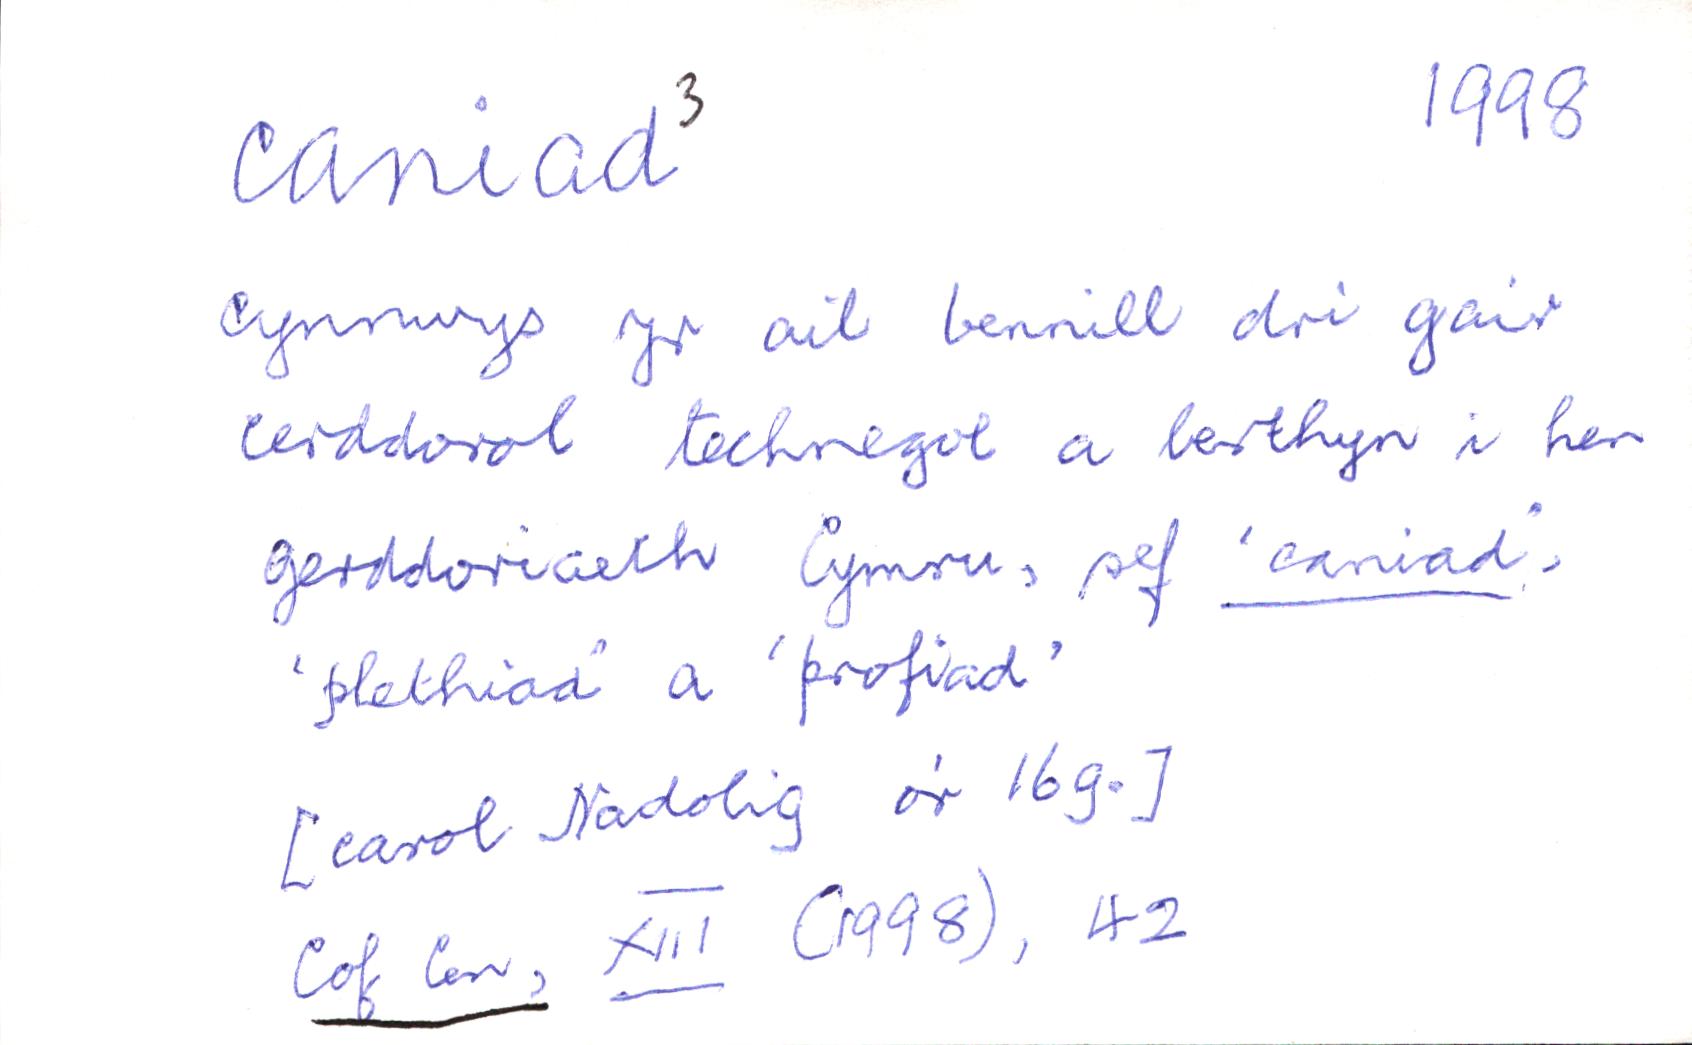 caniad³ 1998
Cynnwys yr ail bennill dri gair
cerddorol technegol a berthyn i hen
gerddoriaeth Cymru, sef 'caniad',
'plethiad' a 'profiad'
[carol Nadolig o'r 16g.]
Cof Cen, XIII (1998), 42